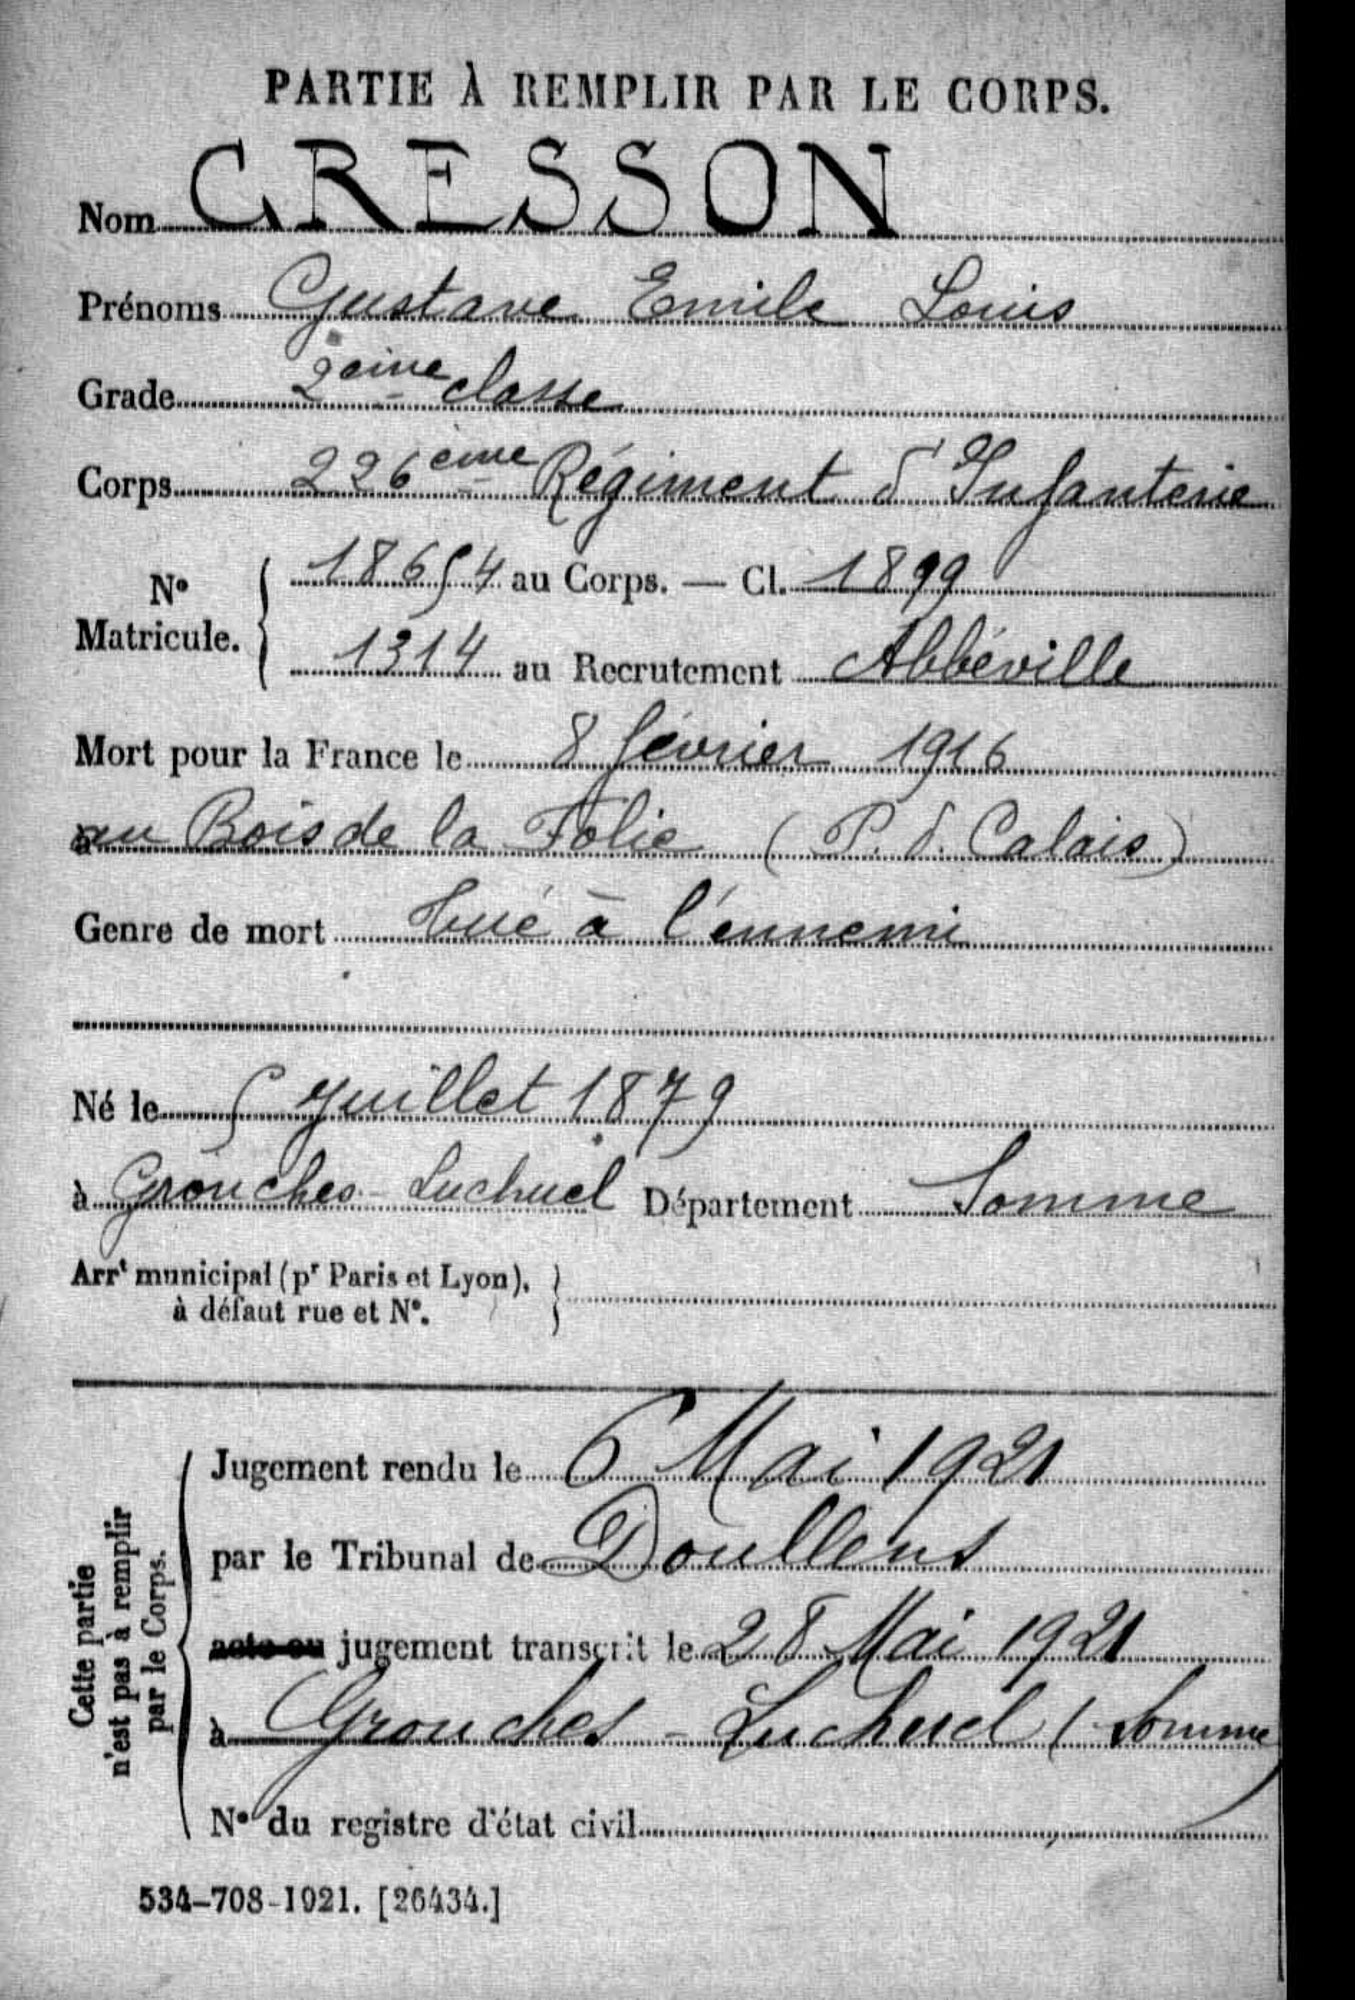 PARTIE À REMPLIR PAR LE CORPS.
Nom CRESSON
Prénoms Gustave Emile Louis
Grade 2eme classe
Corps 226ème Régiment d'Infanterie
No Matricule. 18654 au Corps. — Cl. 1899
1314 au Recrutement Abbéville
Mort pour la France le 8 février 1916
au Bois de la Folie (P. d. Calais)
Genre de mort tué à l'ennemi
Né le 5 Juillet 1879
à Grouches-Luchuel Département Somme
Arrt municipal (pr Paris et Lyon),
à défaut rue et No.
Cette partie
n'est pas à remplir
par le Corps.
Jugement rendu le 6 Mai 1921
par le Tribunal de Doullens
acte ou jugement transcrit le 28 Mai 1921
à Grouches-Luchuel (Somme)
No du registre d'état civil
534-708-1921. [26434.]